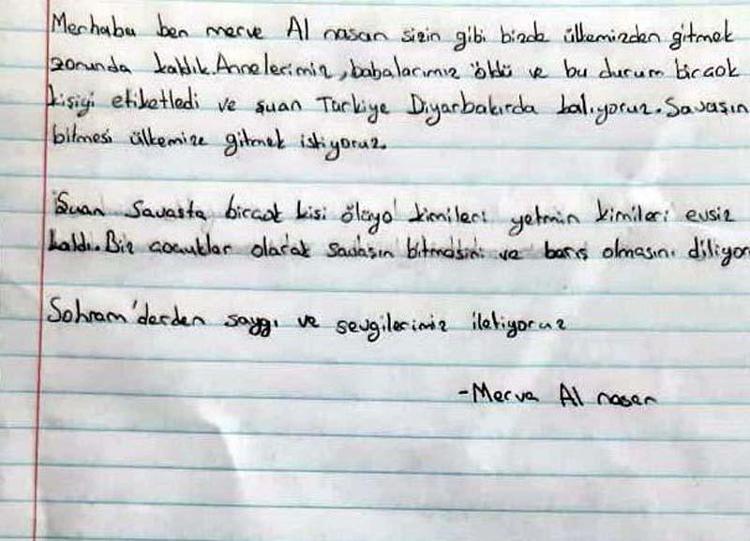 Merhaba ben merve Al nasan sizin gibi bizde ülkemizden gitmek
zorunda kaldık. Annelerimiz, babalarımız öldü ve bu durum bircok
kişiyi etiketledi ve şuan Türkiye Diyarbakırda kalıyoruz. Savaşın
bitmesi ülkemize gitmek istiyoruz.
Şuan Savasta bircok kisi ölüyo kimileri yetmin kimileri evsiz
kaldı. Biz cocuklar olarak savaşın bitmesini ve barış olmasını diliyor
Sohram'derden saygı ve sevgilerimiz iletiyoruz
-Merve Al naser